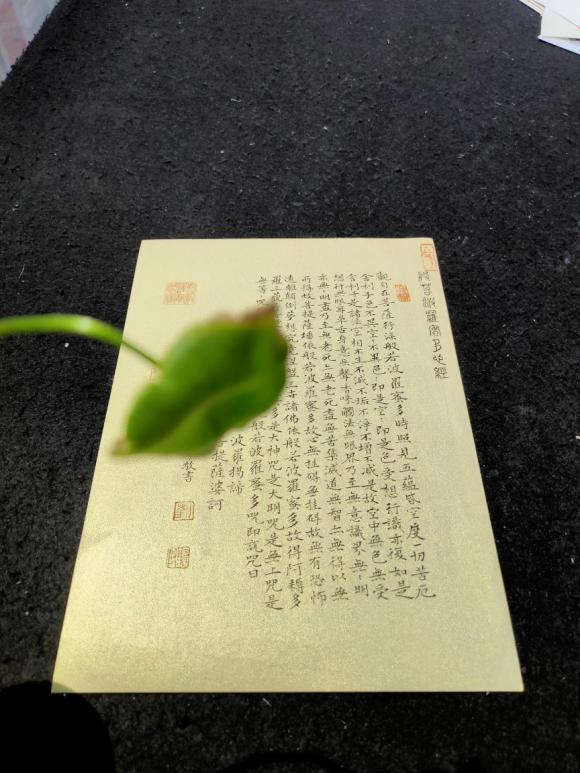 般若波羅蜜多心經
觀自在菩薩行深般若波羅蜜多時照見五蘊皆空度一切苦厄
舍利子色不異空ヽ不異色ヽ即是空ヽ即是色受想行識亦復如是
舍利子是諸法空相不生不滅不垢不淨不增不減是故空中無色無受
想行無眼耳鼻舌身意無聲香味觸法無眼界乃至無意識界無ヽ明
亦無ヽ明盡乃至無老死亦無老死盡無苦集滅道無智亦無得以無
所得故菩提薩埵依般若波羅蜜多故心無挂碍無挂碍故無有恐怖
遠離顛倒夢想究竟涅槃三世諸佛依般若波羅蜜多故得阿耨多
羅三藐多是大神咒是大明咒是無上咒是
無等般若波羅蜜多咒即說咒曰
波羅揭諦
菩提薩婆訶
敬書
劉